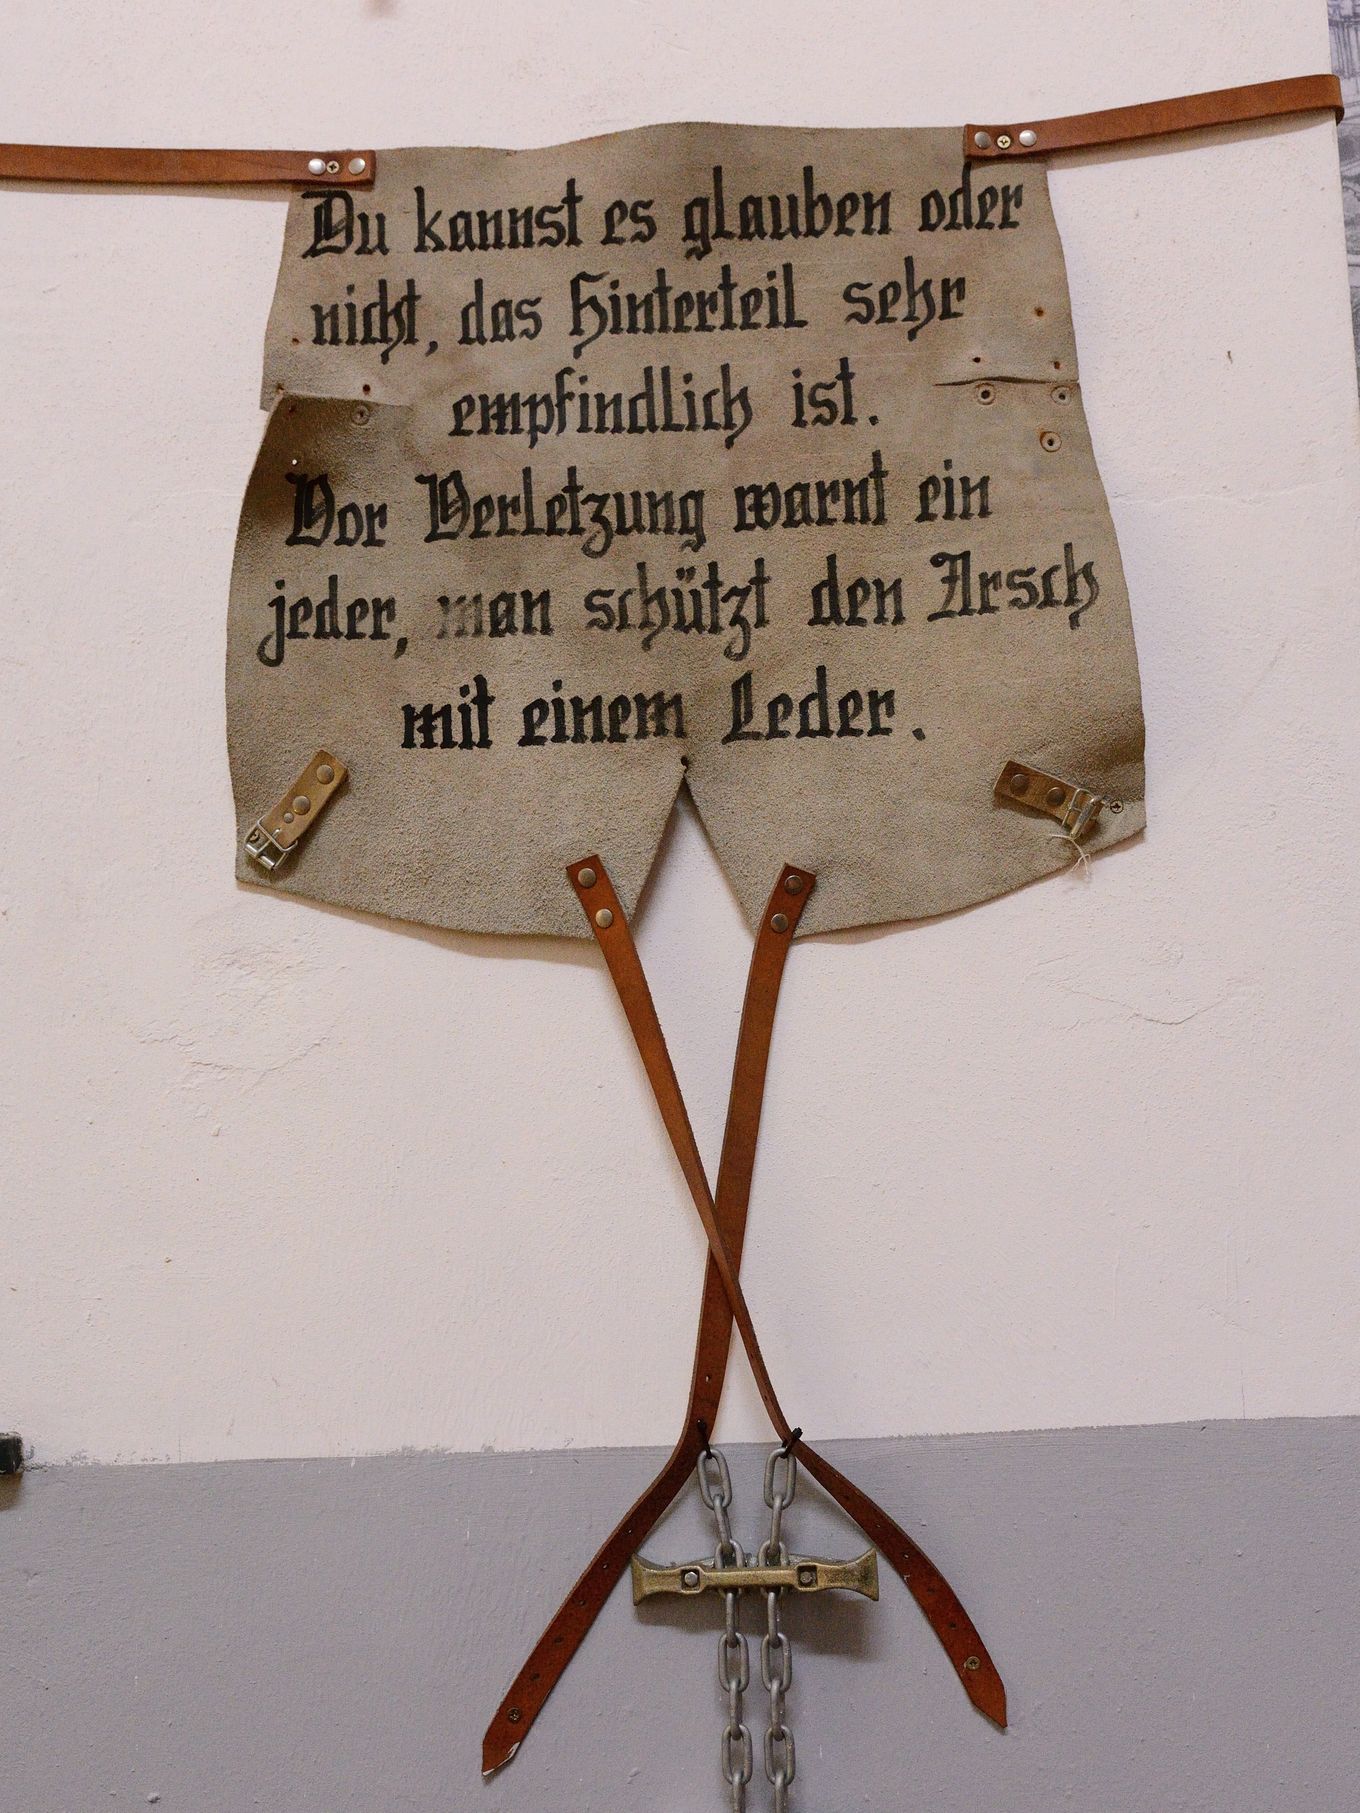 Du kannst es glauben oder
nicht, das Hinterteil sehr
empfindlich ist.
Vor Verletzung warnt ein
jeder, man schützt den Arsch
mit einem Leder.